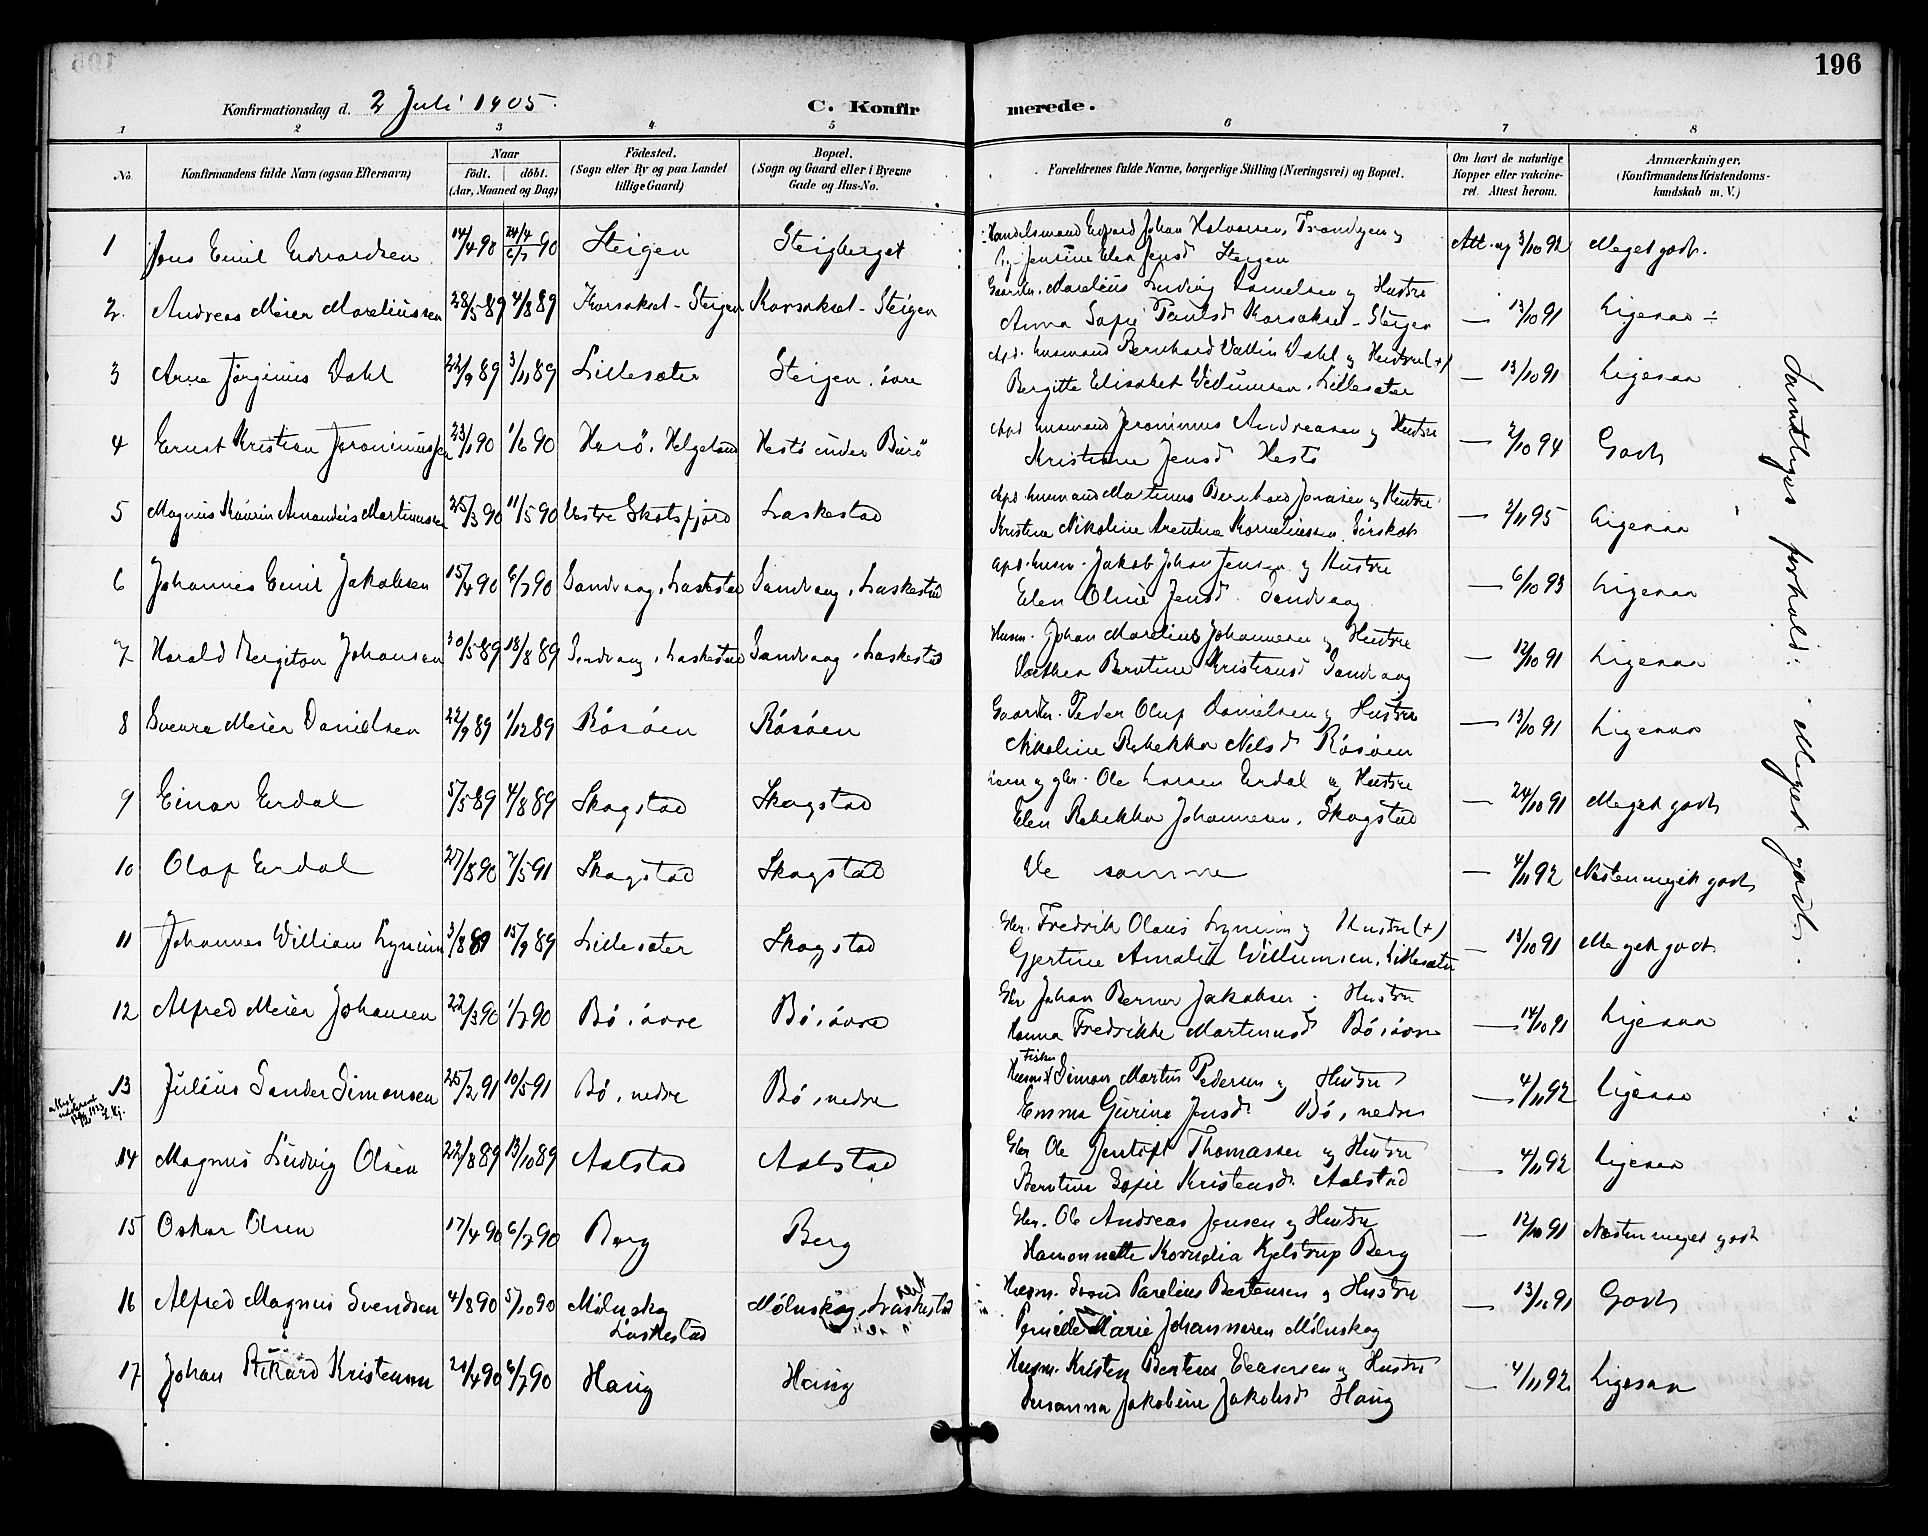 196
Konfirmationsdag d. 2 Juli 1905.
C. Konfirmerede.
1 2 3 4 5 6 7 8
No.
Konfirmandens fulde Navn (ogsaa Efternavn)
Naar
födt. döbt.
(Aar, Maaned og Dag)
Födested.
(Sogn eller By og paa Landet
tillige Gaard)
Bopæl.
(Sogn og Gaard eller i Byerne
Gade og Hus-No.
Forældrenes fulde Navne, borgerlige Stilling (Næringsvei) og Bopæl.
Om havt de naturlige
Kopper eller vakcine-
ret. Attest herom.
Anmærkninger,
(Konfirmandens Kristendoms-
kundskab m. V.)
1 Jens Emil Edvardsen 14/4 90 24/4 6/7 90 Steigen Steigberget Handelsmand Edvard Johan Halvorsen, Trondjem og Att. ag 3/10 92 Meget godt.
Pige Jensine Elen Jensd Steigen
2. Andreas Meier Moreliussen 28/5 89 4/8 89 Korsoksel - Steigen Korsoksel - Steigen Gaardbr. Morelius Ludvig Danielsen og Hustru
Anna Sofie Paulsd Korsoksel - Steigen — 13/10 91 Ligesaa
3 Arne Jörginus Dahl 22/9 89 3/11 89 Lillesæter Steigen, övre Apd. husmand Bernhard Vallin Dahl og Hustru (+)
Bergitte Elisabet Willumsen, Lillesæter — 13/10 91 Ligesaa
4 Ernst Kristian Jeronimussen 23/1 90 1/6 90 Herö, Helgeland Hestö under Burö Apd husmand Jeronimus Andreasen og Hustru
Kristiane Jensd Hestö — 2/10 94 Godt
5 Magnus Kaurin Amandus Martinussen 25/3 90 11/5 90 Vestre Skotsfjord Laskestad Apd. husmand Martinus Bernhard Jonasen og Hustru
Kristine Nikoline Arentine Korneliussen, Sörskot — 2/11 95 Ligesaa
6 Johannes Emil Jakobsen 15/4 90 6/7 90 Sandvaag, Laskestad Sandvaag, Laskestad Apd. husm. Jakob Johan Jensen og Hustru
Elen Oline Jensd. Sandvaag — 6/10 93 Ligesaa
7 Harald Bergiton Johansen 30/5 89 18/8 89 Sandvaag, Laskestad Sandvaag, Laskestad Husm. Johan Morelius Johannesen og Hustru
Dorthea Berntine Kristiansd Sandvaag — 12/10 91 Ligesaa
8 Sverre Meier Danielsen 22/9 89 1/12 89 Rösöen Rösöen Gaardbr. Peder Oluf Danielsen og Hustru
Nikoline Rebekka Nilsd Rösöen — 13/10 91 Ligesaa
9 Einar Erdal 5/5 89 4/8 89 Skogstad Skogstad Lærer og gbr. Ole Larsen Erdal og Hustru
Elen Rebekka Johannesen, Skogstad — 24/10 91 Meget godt
10 Olaf Erdal 27/8 90 7/5 91 Skogstad Skogstad De samme — 4/11 92 Næsten meget godt
11 Johannes William Lynum 3/8 89 15/9 89 Lillesæter Skogstad Gbr. Fredrik Olaus Lynum og Hustru (+)
Gjertine Amalia Willumsen, Lillesæter — 13/10 91 Meget godt
12 Alfred Meier Johansen 22/3 90 1/7 90 Bö, övre Bö, övre Gbr Johan Berner Jakobsen : Hustru
Hanna Fredrikke Martinusd Bö, övre — 14/10 91 Ligesaa
13 Julius Sander Simonsen 25/2 91 10/5 91 Bö, nedre Bö, nedre Fisker
Husm. Simon Martin Pedersen og Hustru
Emma Gurine Jensd Bö, nedre — 4/11 92 Ligesaa
14 Magnus Ludvig Olsen 22/8 89 13/10 89 Aalstad Aalstad Gbr Ole Jentoft Thomassen og Hustru
Berntine Sofie Kristensd. Aalstad — 4/11 92 Ligesaa
15 Oskar Olsen 17/4 90 6/7 90 Berg Berg Gbr. Ole Andreas Jensen og Hustru
Hamonnette Kornelia Kjelstrup Berg — 12/10 91 Næsten meget godt
16 Alfred Magnus Svendsen 4/8 90 5/10 90 Mölnskog Laskestad Mölnskog, Laskestad Husm. Svend Parelius Berteusen og Hustru
Pernille Marie Johannesen Mölnskog — 13/11 91 Godt
17 Johan Rikard Kristensen 21/4 90 6/7 90 Haug Haug Husm. Kristen Benteus Edvardsen og Hustru
Susanna Jakobine Jakobsd Haug — 4/11 92 Ligesaa
Samtliges forhold: meget godt.